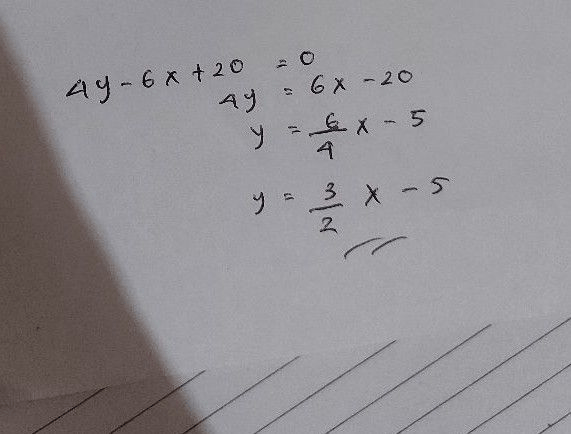 4y - 6x + 20 = 0
4y = 6x - 20
y = 6/4 x - 5
y = 3/2 x - 5